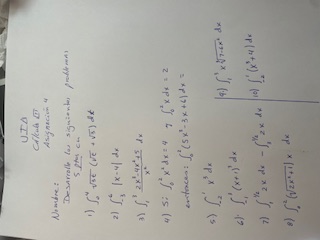 U.I.D
Cálculo III
Asignación 4
Nombre:
Desarrolle los siguientes problemas.
5 pts c/u
1) ∫₀⁴ √5t (√t + √5) dt
2) |x-4| dx
3) ∫₁ (2x³-4x²+5)/x² dx
4) Si: ∫₀² x³ dx = 4 y ∫₀² x dx = 2
entonces: ∫₀² (5x³-3x+6) dx =
5) x³ dx
6) (x+1)³ dx
7) 2x dx - 2x dx
8) x dx
9) dx
10) (x³+4) dx